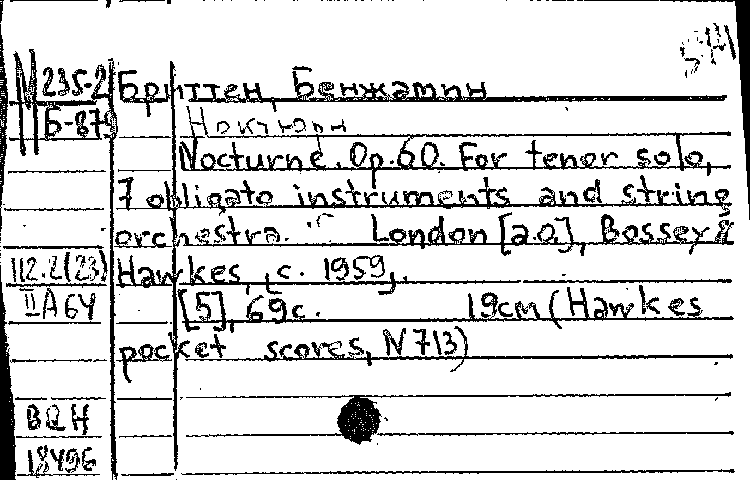 М 235-2 Бриттен, Бенжамин
Б-879 Ноктюрн
Nocturne. Op.60. For tenor solo,
7 obligato instruments and string
orchestra. London [a.o.], Bossey &
112.2(23) Hawkes, [c. 1959].
II A64 [5], 69c. 19cm (Hawkes
pocket scores, N 713)
18496